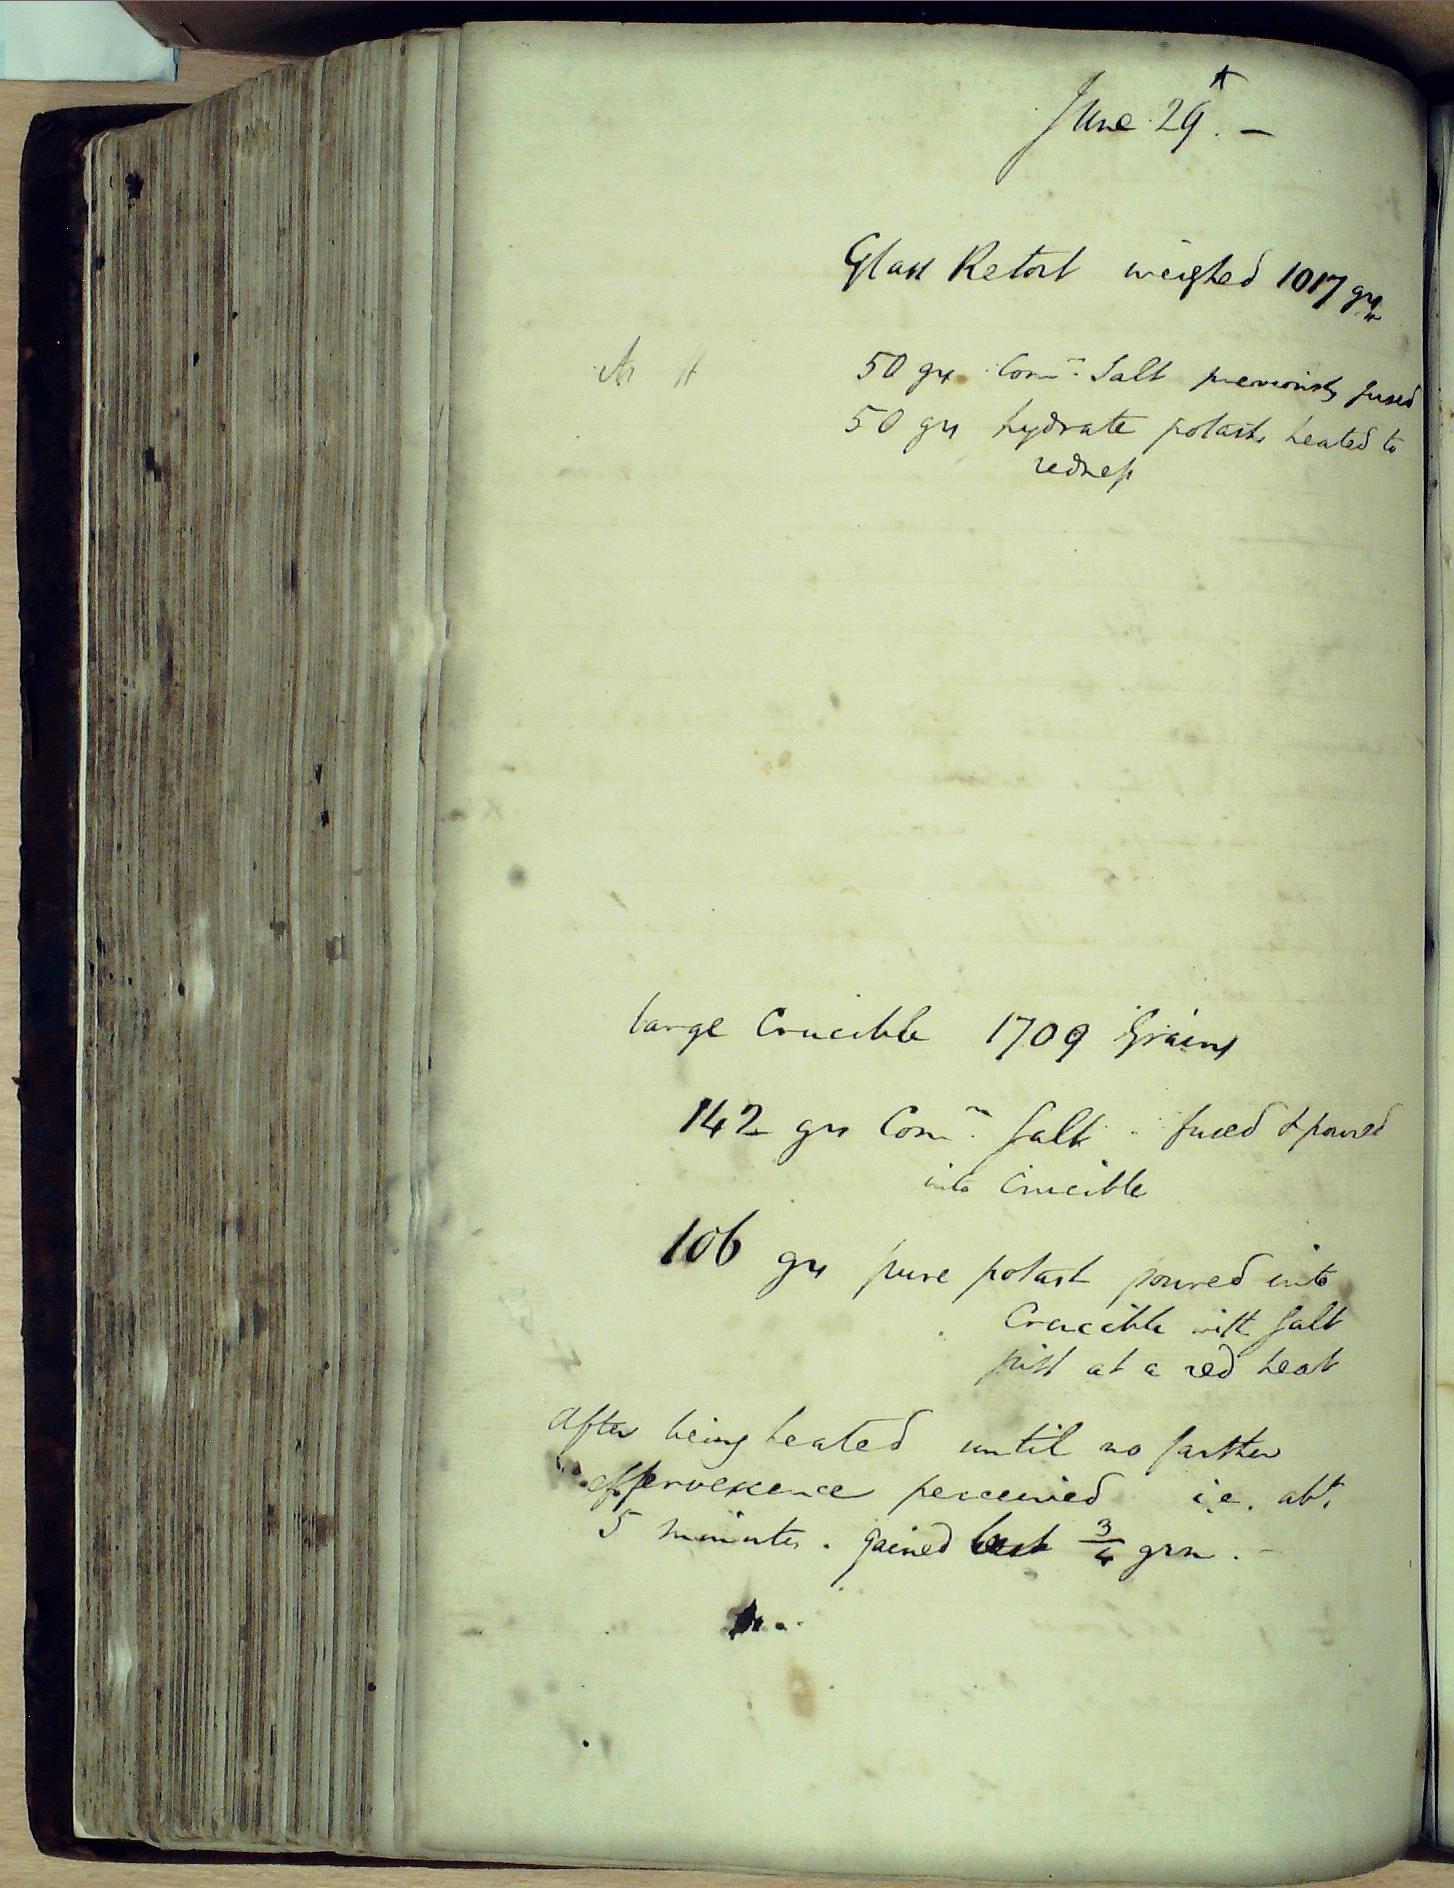 June 29th. —
Glass Retort weighed 1017 grs
50 grs Comn. Salt previously fused
50 grs hydrate potash heated to
redness
large Crucible 1709 Grains
142 grs Comn. Salt fused & poured
into Crucible
106 grs pure potash poured into
Crucible with Salt
just at a red heat
After being heated until no farther
effervescence perceived i.e. abt.
5 minutes. gained 3/4 grn. —